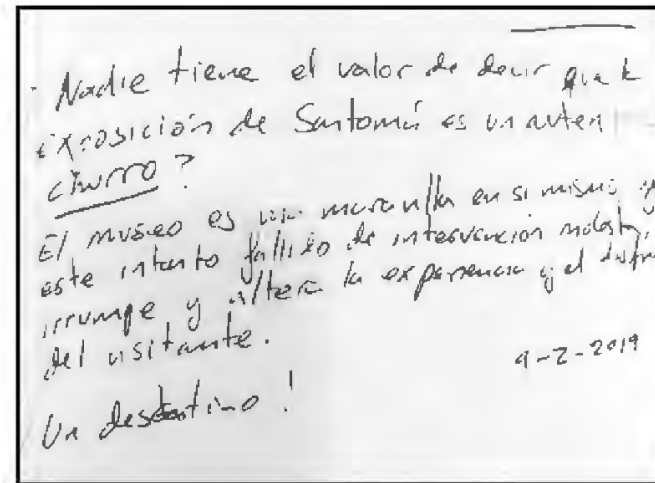 · Nadie tiene el valor de decir que la
exposición de Santomá es un auten
churro?
El museo es una maravilla en si mismo y
este intento fallido de intervención molesta,
irrumpe y altera la experiencia y el disfru
del visitante.
9-2-2019
Un desatino!